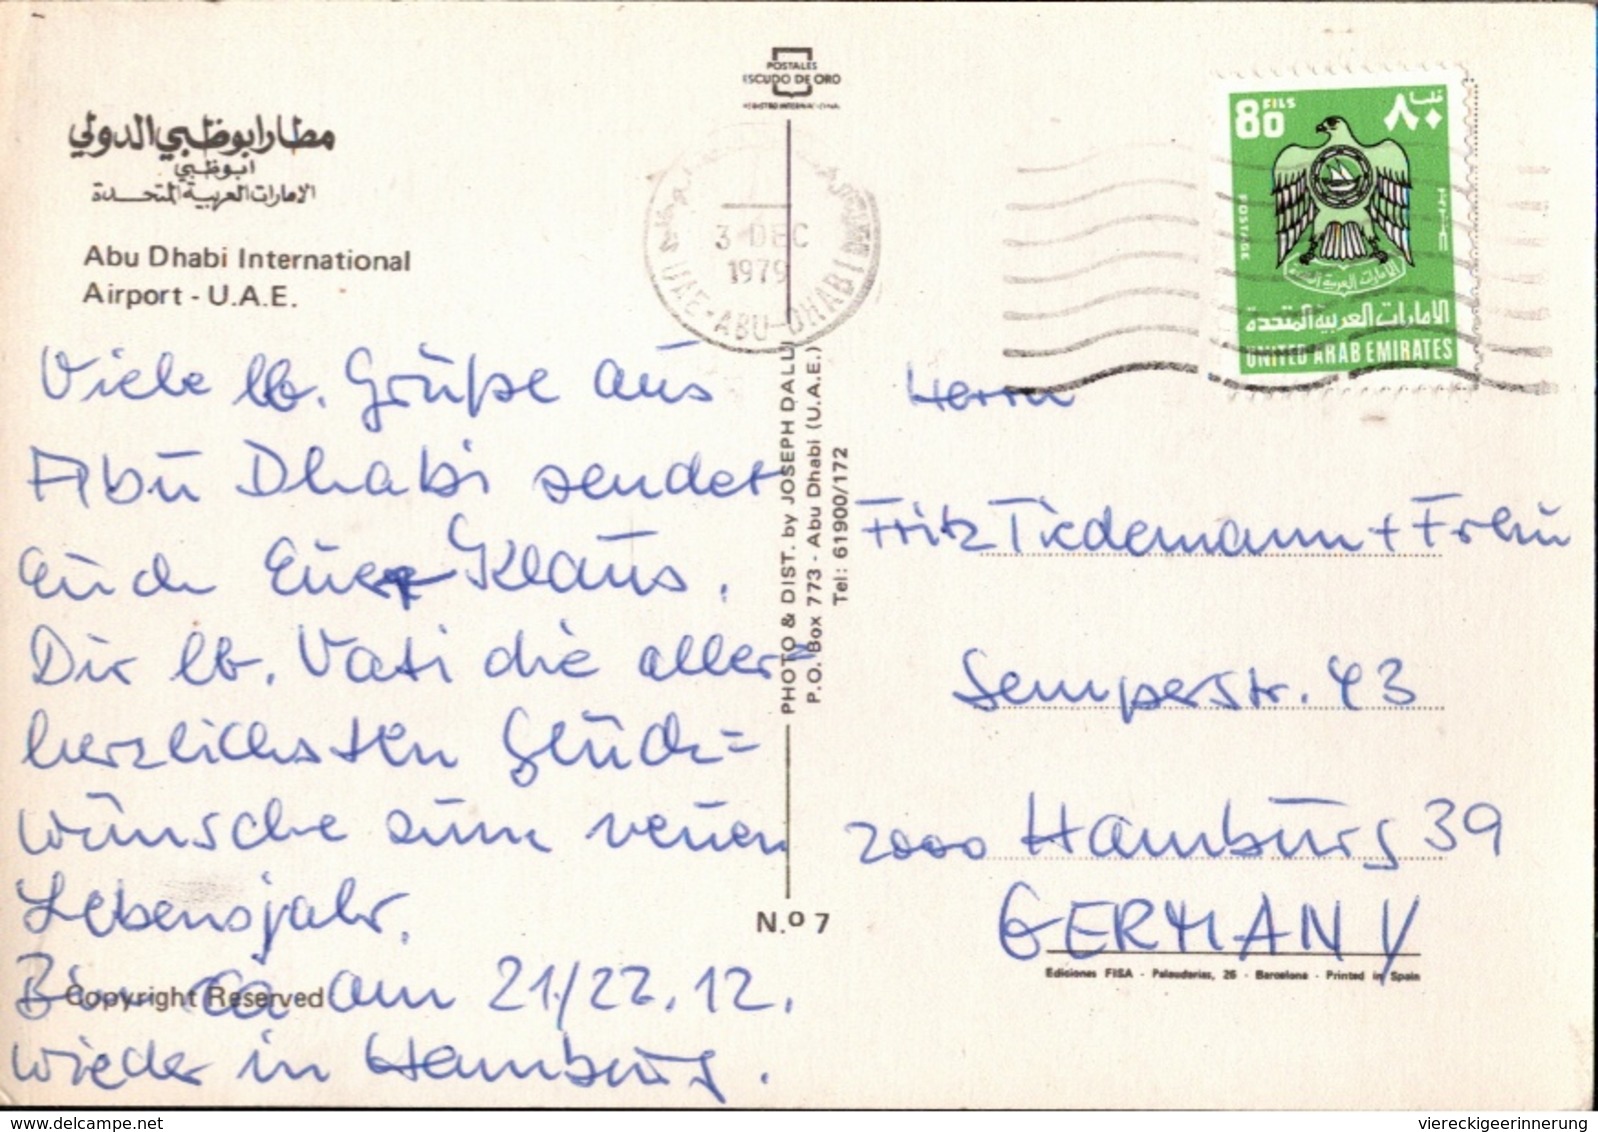 POSTALES
ESCUDO DE ORO
مطار ابوظبي الدولي
ابوظبي
الامارات العربية المتحدة
Abu Dhabi International
Airport - U.A.E.
3 DEC
1979
UAE-ABU-DHABI
80 FILS
٨٠ فلسا
POSTAGE
الامارات العربية المتحدة
الامارات العربية المتحدة
UNITED ARAB EMIRATES
Viele lb. Grüße aus
Abu Dhabi sendet
Euch Euer Klaus.
Dir lb. Vati die aller=
herzlichsten Glück=
wünsche zum neuen
Lebensjahr.
Bin ca am 21/22.12.
wieder in Hamburg.
Copyright Reserved
PHOTO & DIST. by JOSEPH DALLI
P.O. Box 773 - Abu Dhabi (U.A.E.)
Tel: 61900/172
N.º 7
Herrn
Fritz Tiedemann + Frau
Semperstr. 43
2000 Hamburg 39
GERMANY
Ediciones FISA - Palauderias, 26 - Barcelona - Printed in Spain
delcampe.net
viereckigeerinnerung